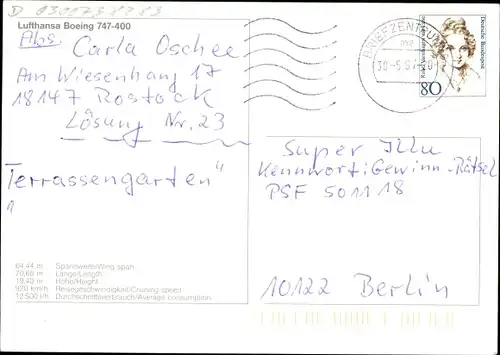 Lufthansa Boeing 747-400
Abs. Carla Oschee
Am Wiesenhang 17
18147 Rostock
Lösung Nr. 23
"Terrassengarten"
64,44 m Spannweite/Wing span
70,66 m Länge/Length
19,40 m Höhe/Height
920 km/h Reisegeschwindigkeit/Cruising speed
12 500 l/h Durchschnittsverbrauch/Average consumption
BRIEFZENTRUM
Deutsche Bundespost
80
Super Illu
Kennwort: Gewinn-Rätsel
PSF 501118
10122 Berlin